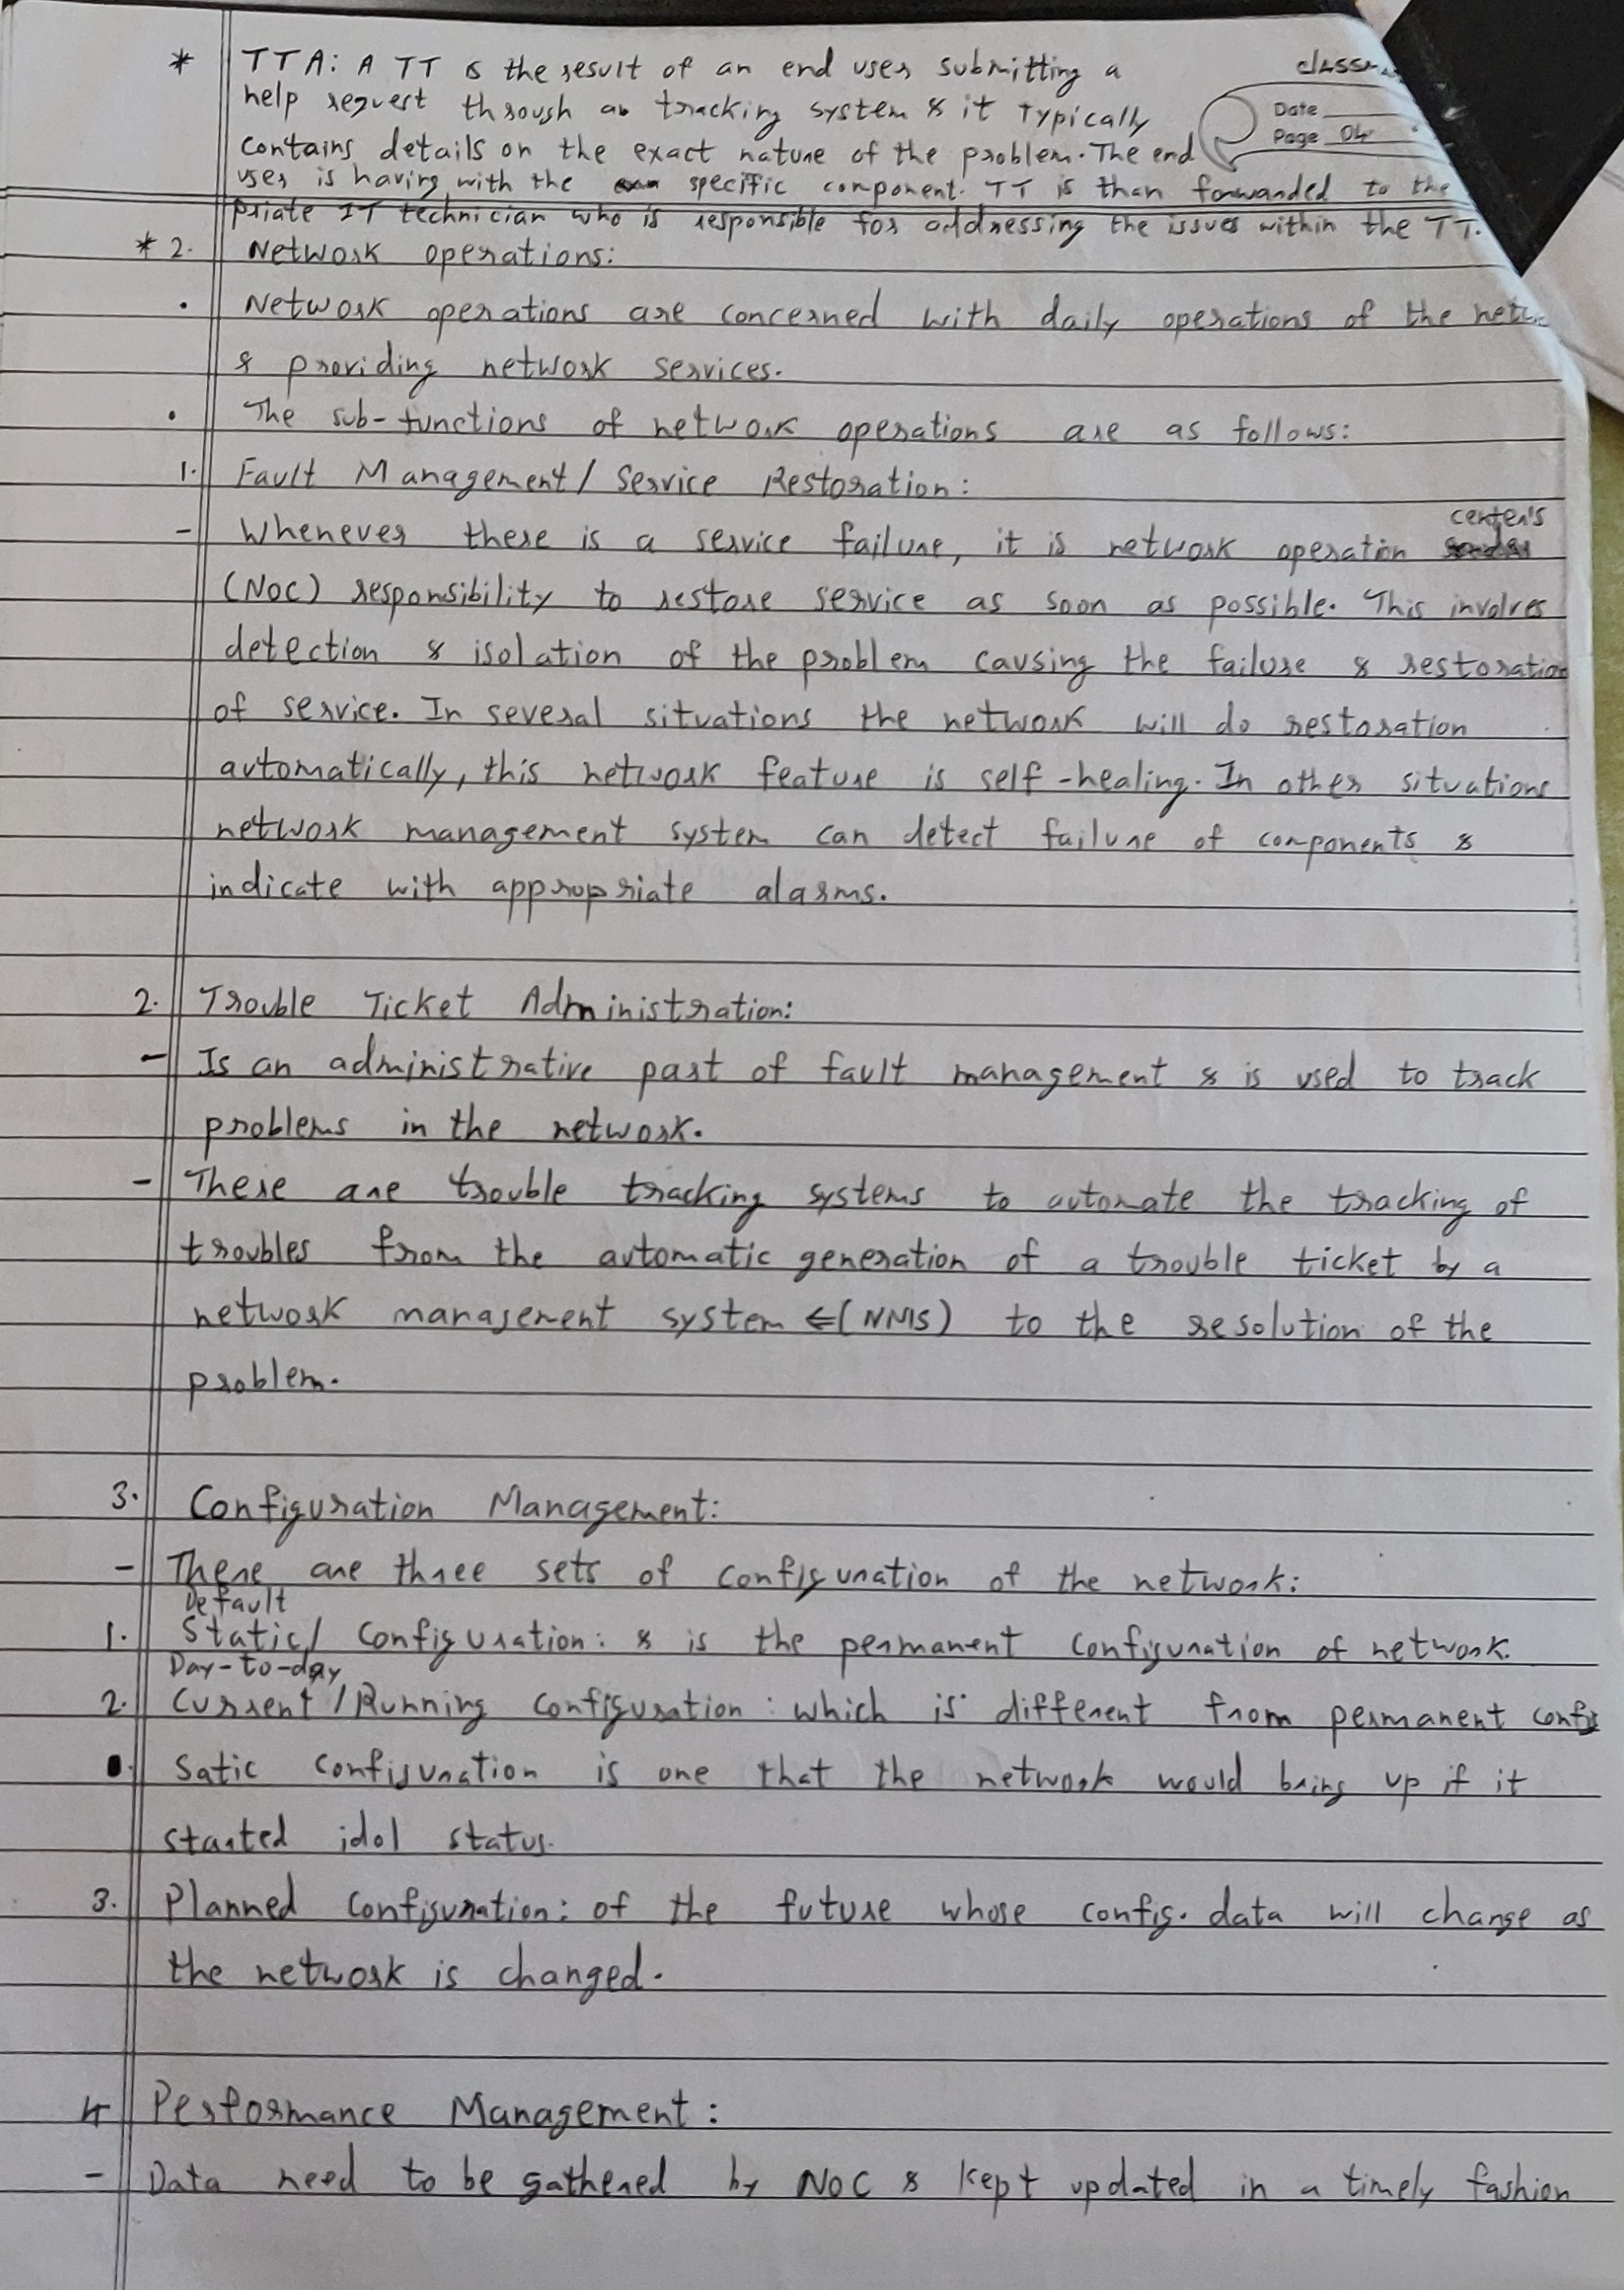 * TTA: A TT is the result of an end user submitting a
help request through a tracking system & it typically
contains details on the exact nature of the problem. The end
user is having with the specific component. TT is than forwarded to the
priate IT technician who is responsible for addressing the issues within the TT.
classm
Date
Page 04
* 2. Network operations:
• Network operations are concerned with daily operations of the netw
& providing network services.
• The sub-functions of network operations are as follows:
1. Fault Management/ Service Restoration:
center's
- Whenever there is a service failure, it is network operation
(NOC) responsibility to restore service as soon as possible. This involves
detection & isolation of the problem causing the failure & restoration
of service. In several situations the network will do restoration
automatically, this network feature is self-healing. In other situations
network management system can detect failure of components &
indicate with appropriate alarms.
2. Trouble Ticket Administration:
- Is an administrative part of fault management & is used to track
problems in the network.
- These are trouble tracking systems to automate the tracking of
troubles from the automatic generation of a trouble ticket by a
network management system (NMS) to the resolution of the
problem.
3. Configuration Management:
- There are three sets of configuration of the network:
Default
1. Static/ Configuration: & is the permanent configuration of network.
Day-to-day
2. Current/Running configuration: which is different from permanent config
• Satic configuration is one that the network would bring up if it
started idol status.
3. Planned configuration: of the future whose config. data will change as
the network is changed.
4 Performance Management:
- Data need to be gathered by NOC & kept updated in a timely fashion